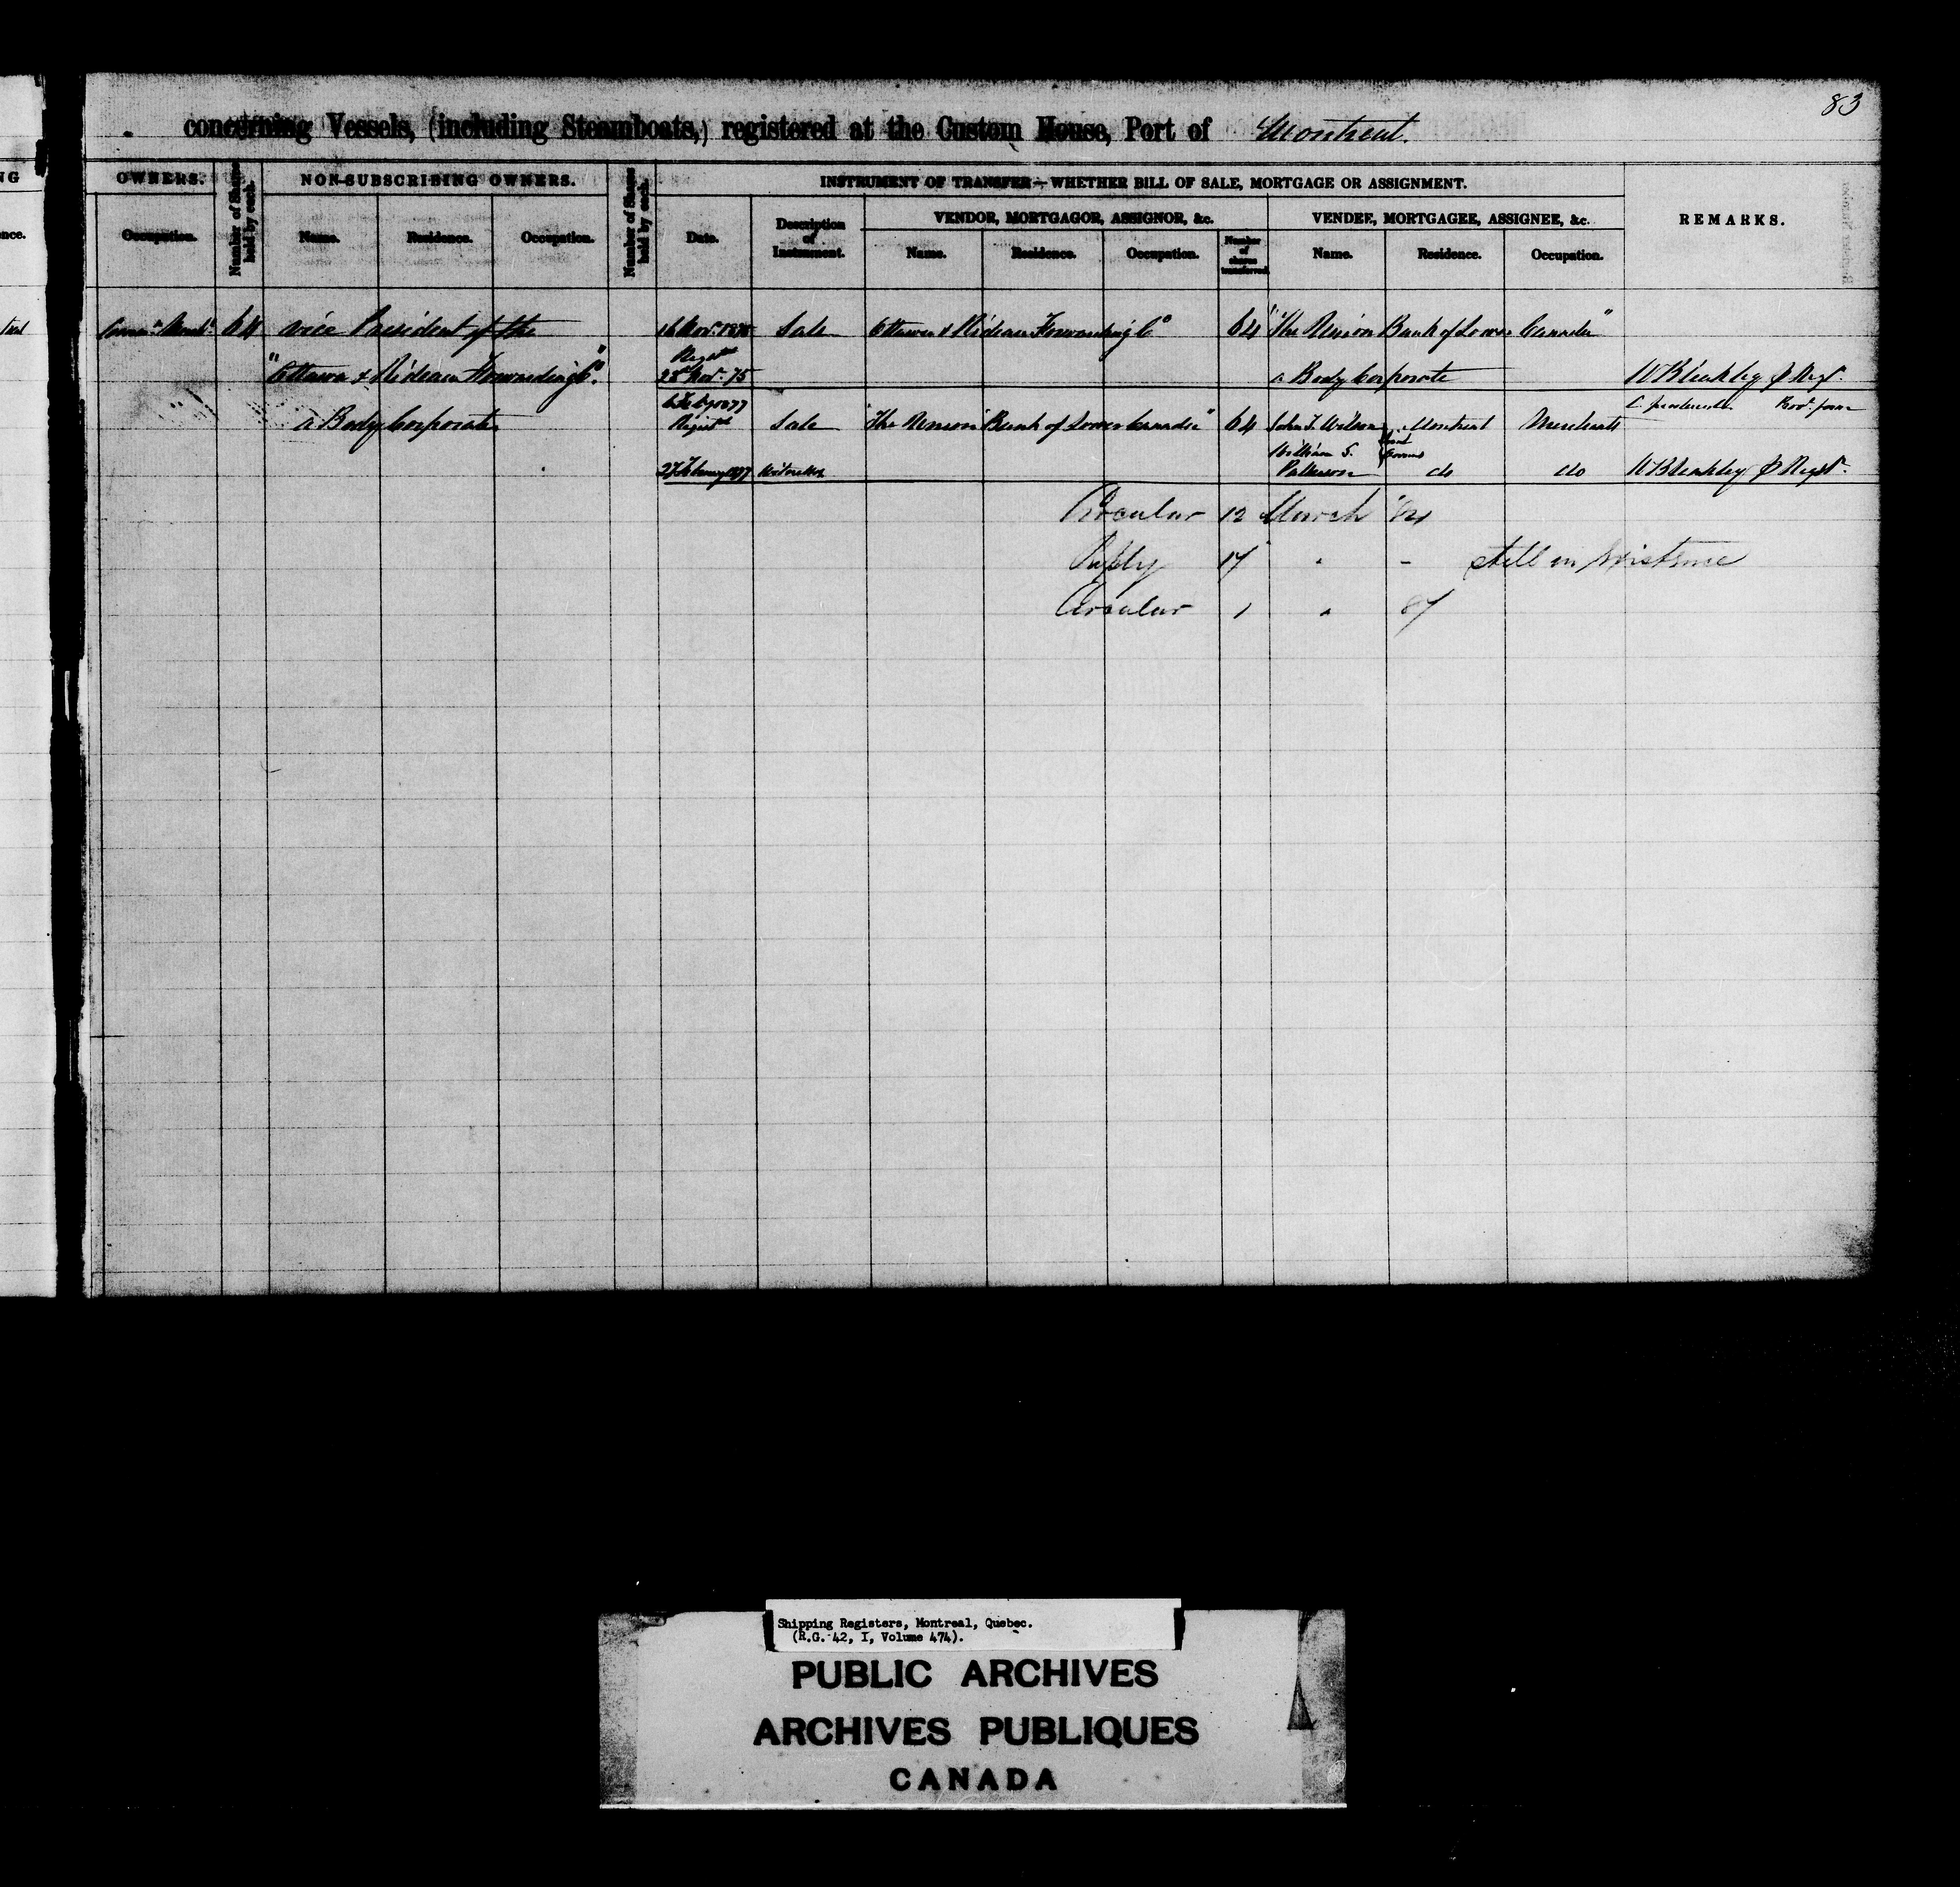 83
concerning Vessels, (including Steamboats,) registered at the Custom House, Port of Montreal.
NG
OWNERS.
Number of Shares held by each.
NON-SUBSCRIBING OWNERS.
Number of Shares held by each.
INSTRUMENT OF TRANSFER—WHETHER BILL OF SALE, MORTGAGE OR ASSIGNMENT.
REMARKS.
VENDOR, MORTGAGOR, ASSIGNOR, &c.
VENDEE, MORTGAGEE, ASSIGNEE, &c.
nce.
Occupation.
Name.
Residence.
Occupation.
Date.
Description of Instrument.
Name.
Residence.
Occupation.
Number of shares transferred.
Name.
Residence.
Occupation.
64 vice President of the 16 Nov. 1875 Sale Ottawa & Rideau Forwarding Co 64 "The Union Bank of Lower Canada"
"Ottawa & Rideau Forwarding Co." 23d Nov. 75 a Body Corporate W Bleakley
a Body Corporate Sale "The Union Bank of Lower Canada" 64 John T. Wilson Montreal Merchants
William S.
Patterson do do W Bleakley
Circular 12 March
Reply 17 " - still in existence
Circular 1 " 87
Shipping Registers, Montreal, Quebec.
(R.G. 42, I, Volume 474).
PUBLIC ARCHIVES
ARCHIVES PUBLIQUES
CANADA